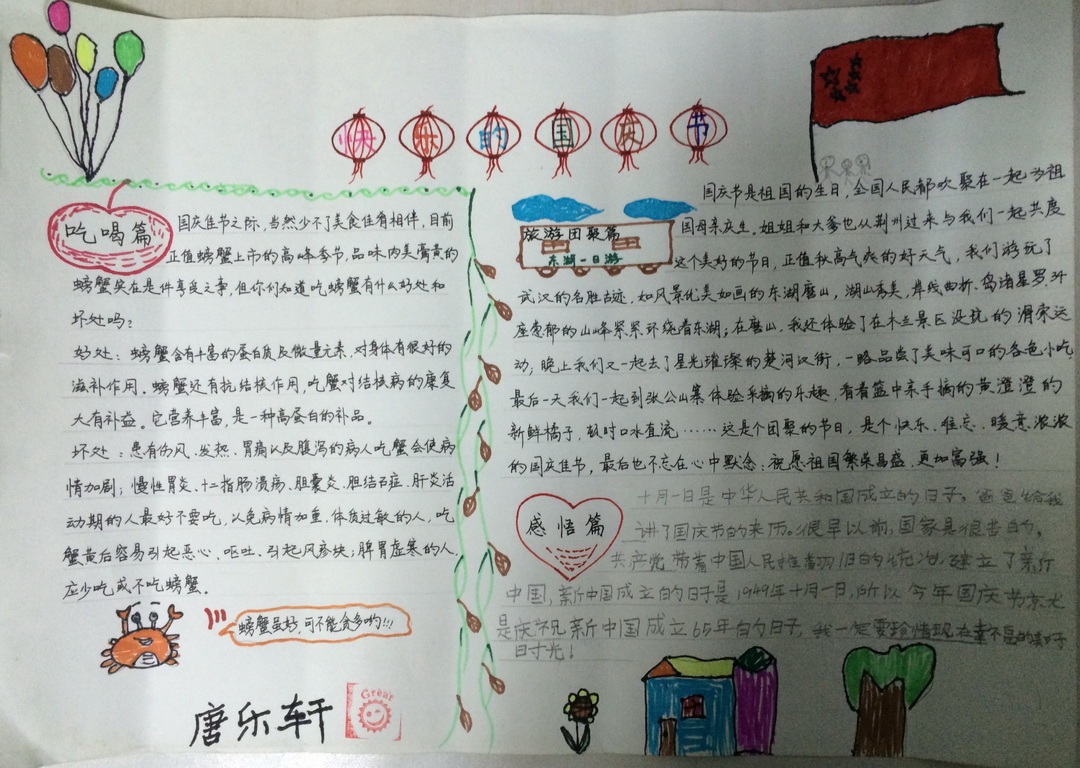 快乐的国庆节
吃喝篇
国庆佳节之际,当然少不了美食佳肴相伴,目前
正值螃蟹上市的高峰季节,品味肉美膏黄的
螃蟹实在是件享受之事,但你们知道吃螃蟹有什么好处和
坏处吗?
好处:螃蟹含有丰富的蛋白质及微量元素,对身体有很好的
滋补作用。螃蟹还有抗结核作用,吃蟹对结核病的康复
大有补益。它营养丰富,是一种高蛋白的补品。
坏处:患有伤风、发热、胃痛以及腹泻的病人吃蟹会使病
情加剧;慢性胃炎、十二指肠溃疡、胆囊炎、胆结石症、肝炎活
动期的人最好不要吃,以免病情加重,体质过敏的人,吃
蟹黄后容易引起恶心、呕吐、引起风疹块;脾胃虚寒的人
应少吃或不吃螃蟹。
螃蟹虽好,可不能贪多哟!!!
唐乐轩
Great
旅游团聚篇
东湖一日游
国庆节是祖国的生日,全国人民都欢聚在一起为祖
国母亲庆生。姐姐和大爹也从荆州过来与我们一起共度
这个美好的节日,正值秋高气爽的好天气,我们游玩了
武汉的名胜古迹,如风景优美如画的东湖磨山,湖山秀美,岸线曲折、岛渚星罗,环
座葱郁的山峰紧紧环绕着东湖;在磨山,我还体验了在木兰景区没玩的滑索运
动,晚上我们又一起去了星光璀璨的楚河汉街,一路品尝了美味可口的各色小吃
最后一天我们一起到张公山寨体验采摘的乐趣,看着篮中亲手摘的黄澄澄的
新鲜橘子,顿时口水直流……这是个团聚的节日,是个快乐、难忘、暖意浓浓
的国庆佳节,最后也不忘在心中默念:祝愿祖国繁荣昌盛,更加富强!
感悟篇
十月一日是中华人民共和国成立的日子。爸爸给我
讲了国庆节的来历。很早以前,国家是很苦的,
共产党带着中国人民推翻旧的统治,建立了新
中国,新中国成立的日子是1949年十月一日,所以今年国庆节
是庆祝新中国成立65年的日子,我一定要珍惜现在幸福的美好
时光!